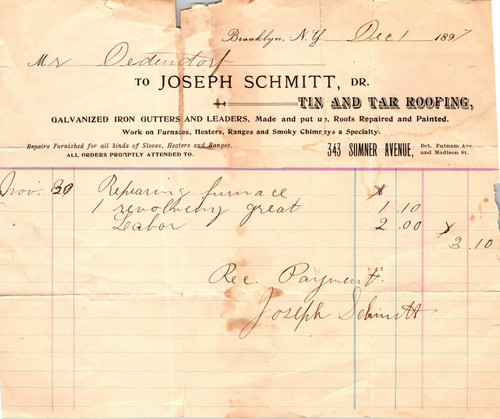 Brooklyn, N.Y. Dec 1 1897
Mr Oedendorf
TO JOSEPH SCHMITT, DR.
TIN AND TAR ROOFING,
GALVANIZED IRON GUTTERS AND LEADERS, Made and put up, Roofs Repaired and Painted.
Work on Furnaces, Heaters, Ranges and Smoky Chimneys a Specialty.
Repairs Furnished for all kinds of Stoves, Heaters and Ranges.
ALL ORDERS PROMPTLY ATTENDED TO.
343 SUMNER AVENUE, Bet. Putnam Ave. and Madison St.
Nov. 30 Reparing furnace
1 revolving great 1.10
Labor 2.00
3.10
Rec. Payment.
Joseph Schmitt